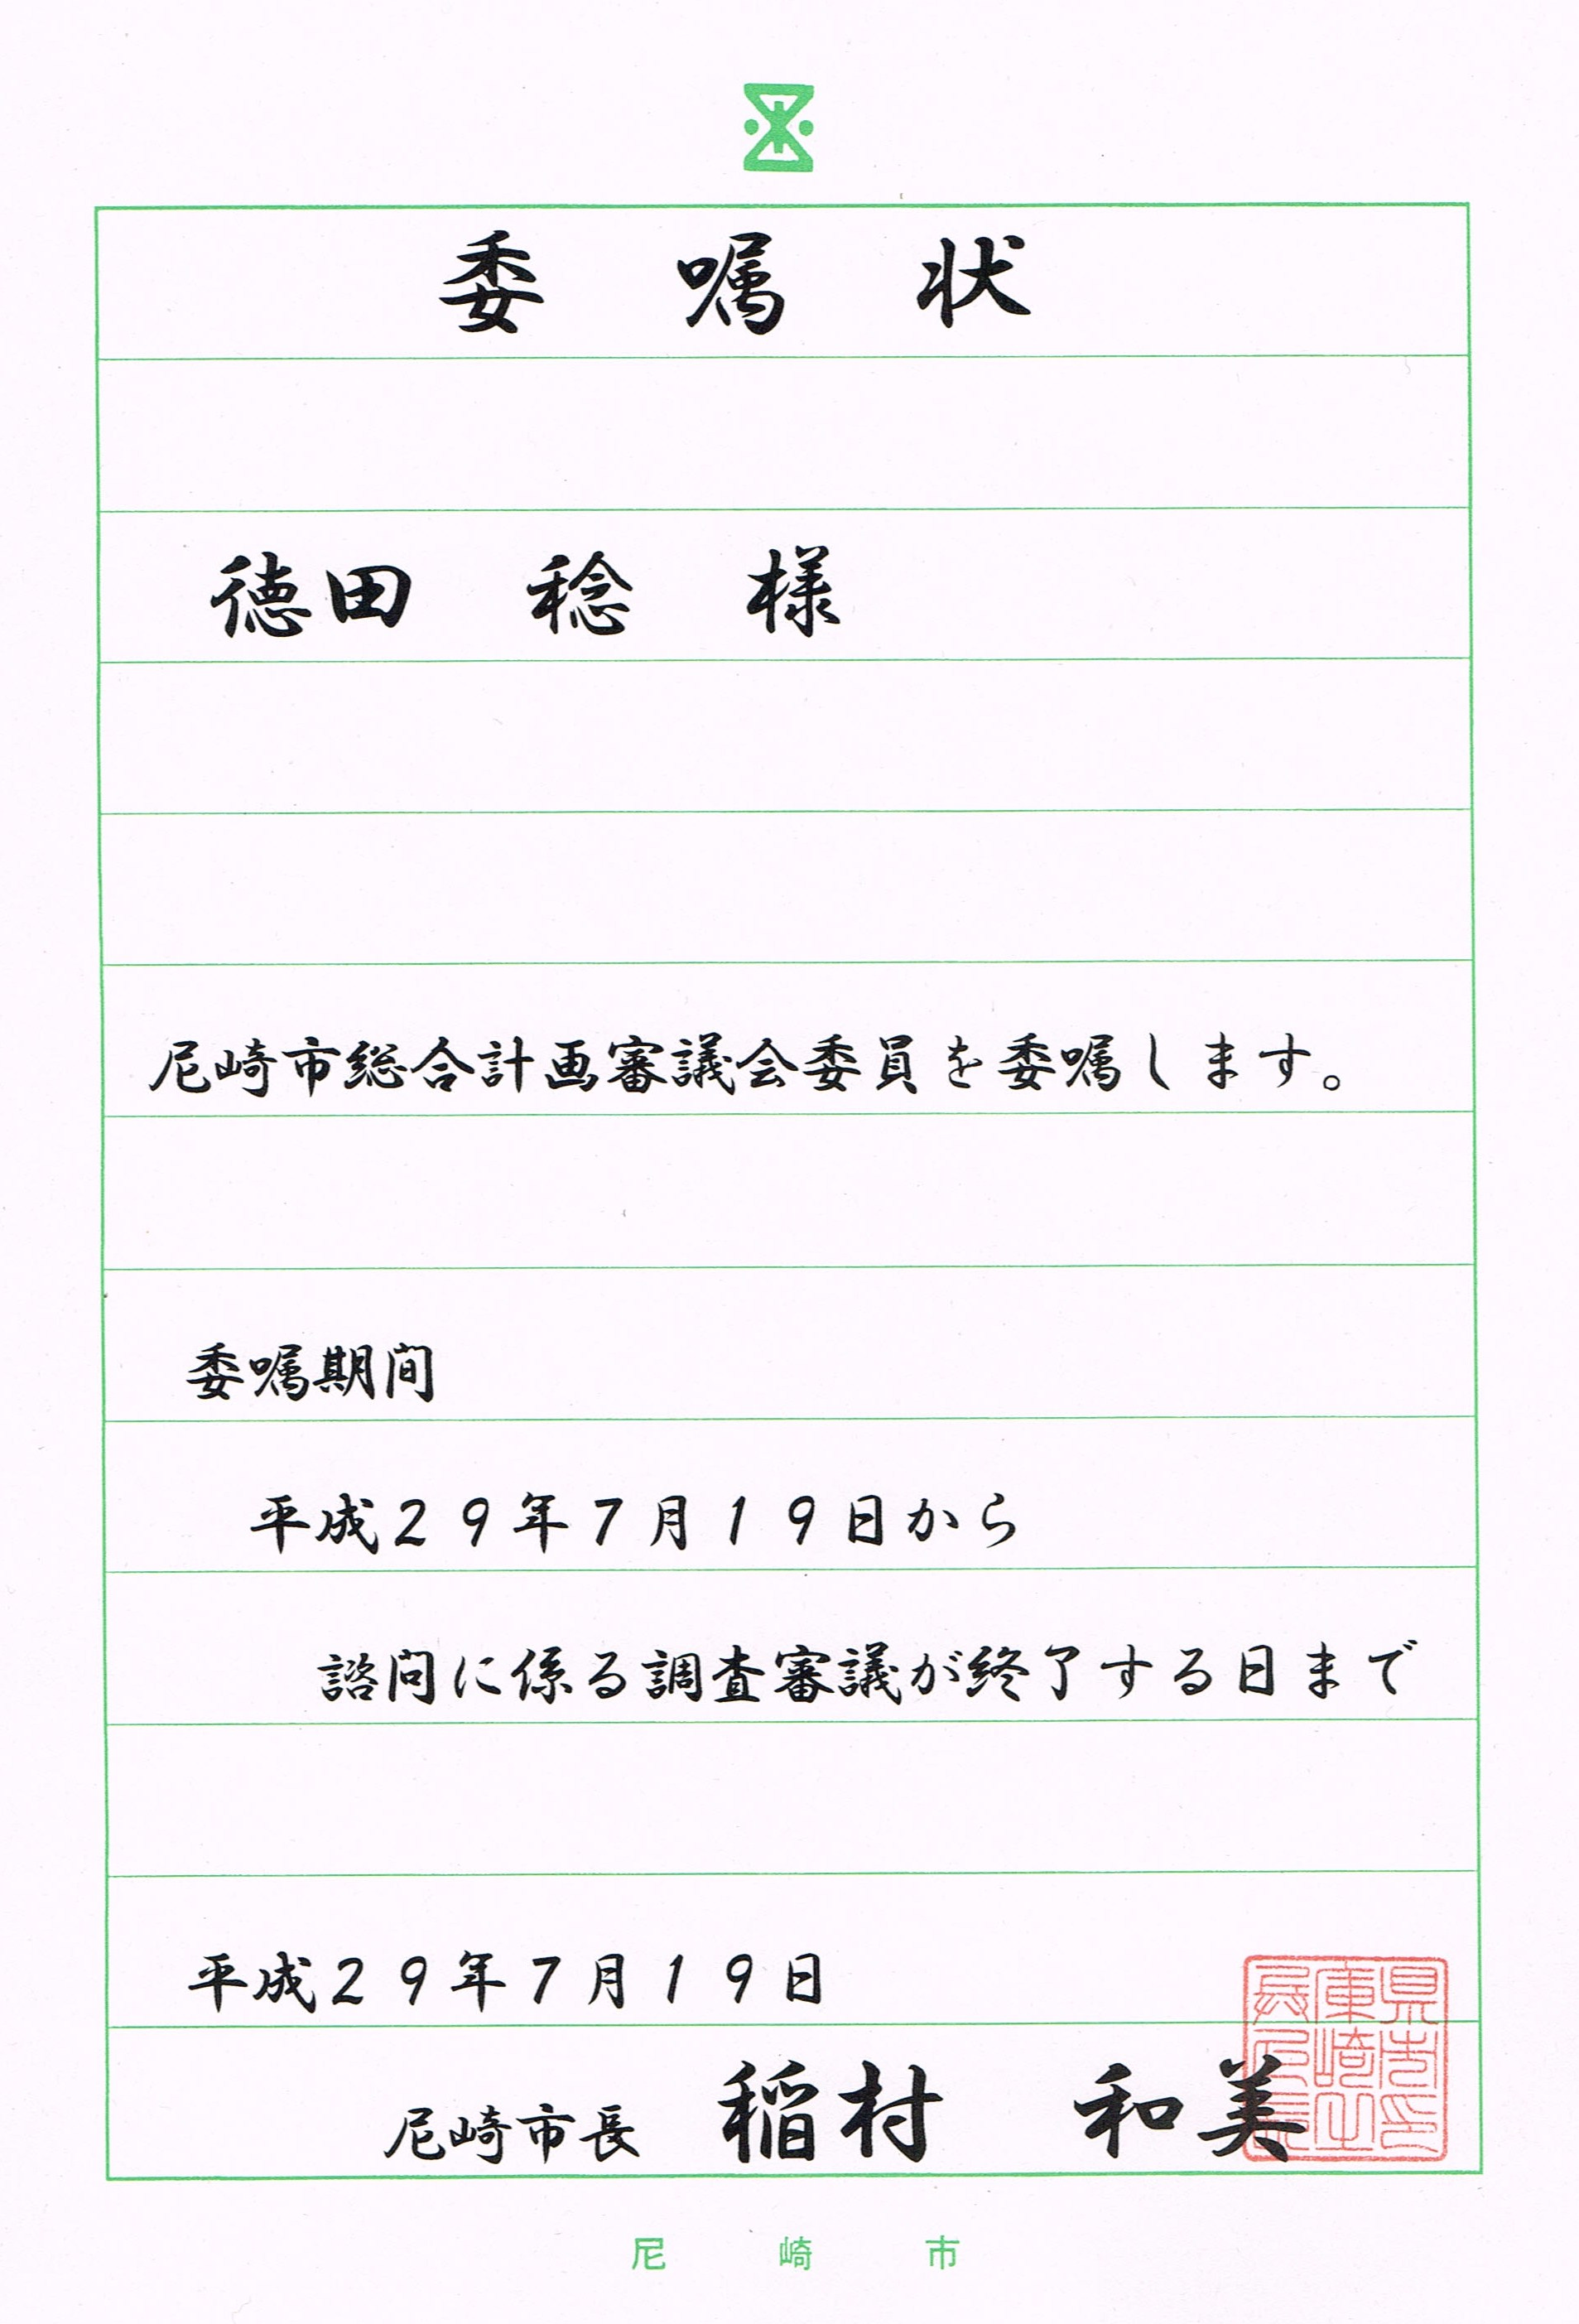 委嘱状
徳田 稔 様
尼崎市総合計画審議会委員を委嘱します。
委嘱期間
平成29年7月19日から
諮問に係る調査審議が終了する日まで
平成29年7月19日
尼崎市長 稲村 和美
尼崎市